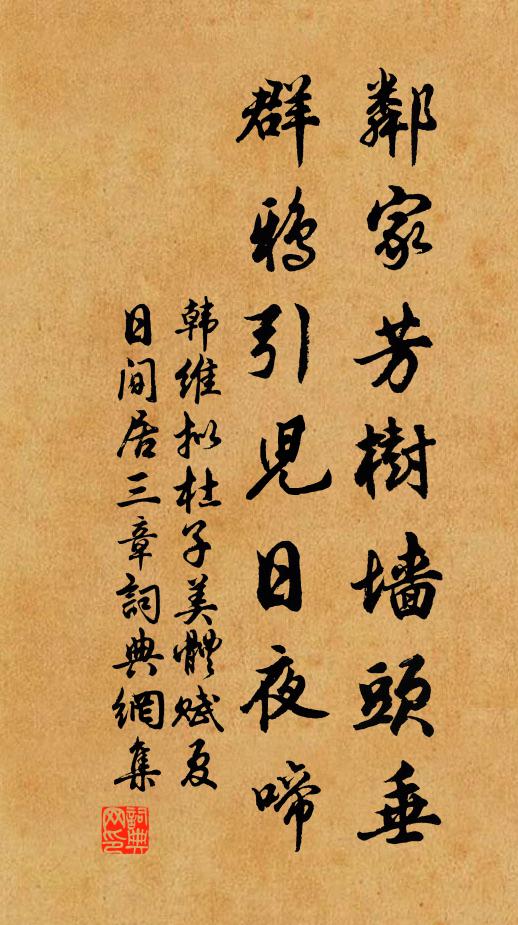 鄰家芳樹墻頭垂
群鴉引児日夜啼
韩維拟杜子美體赋夏
日间居三章詞典網集
詞典
网印